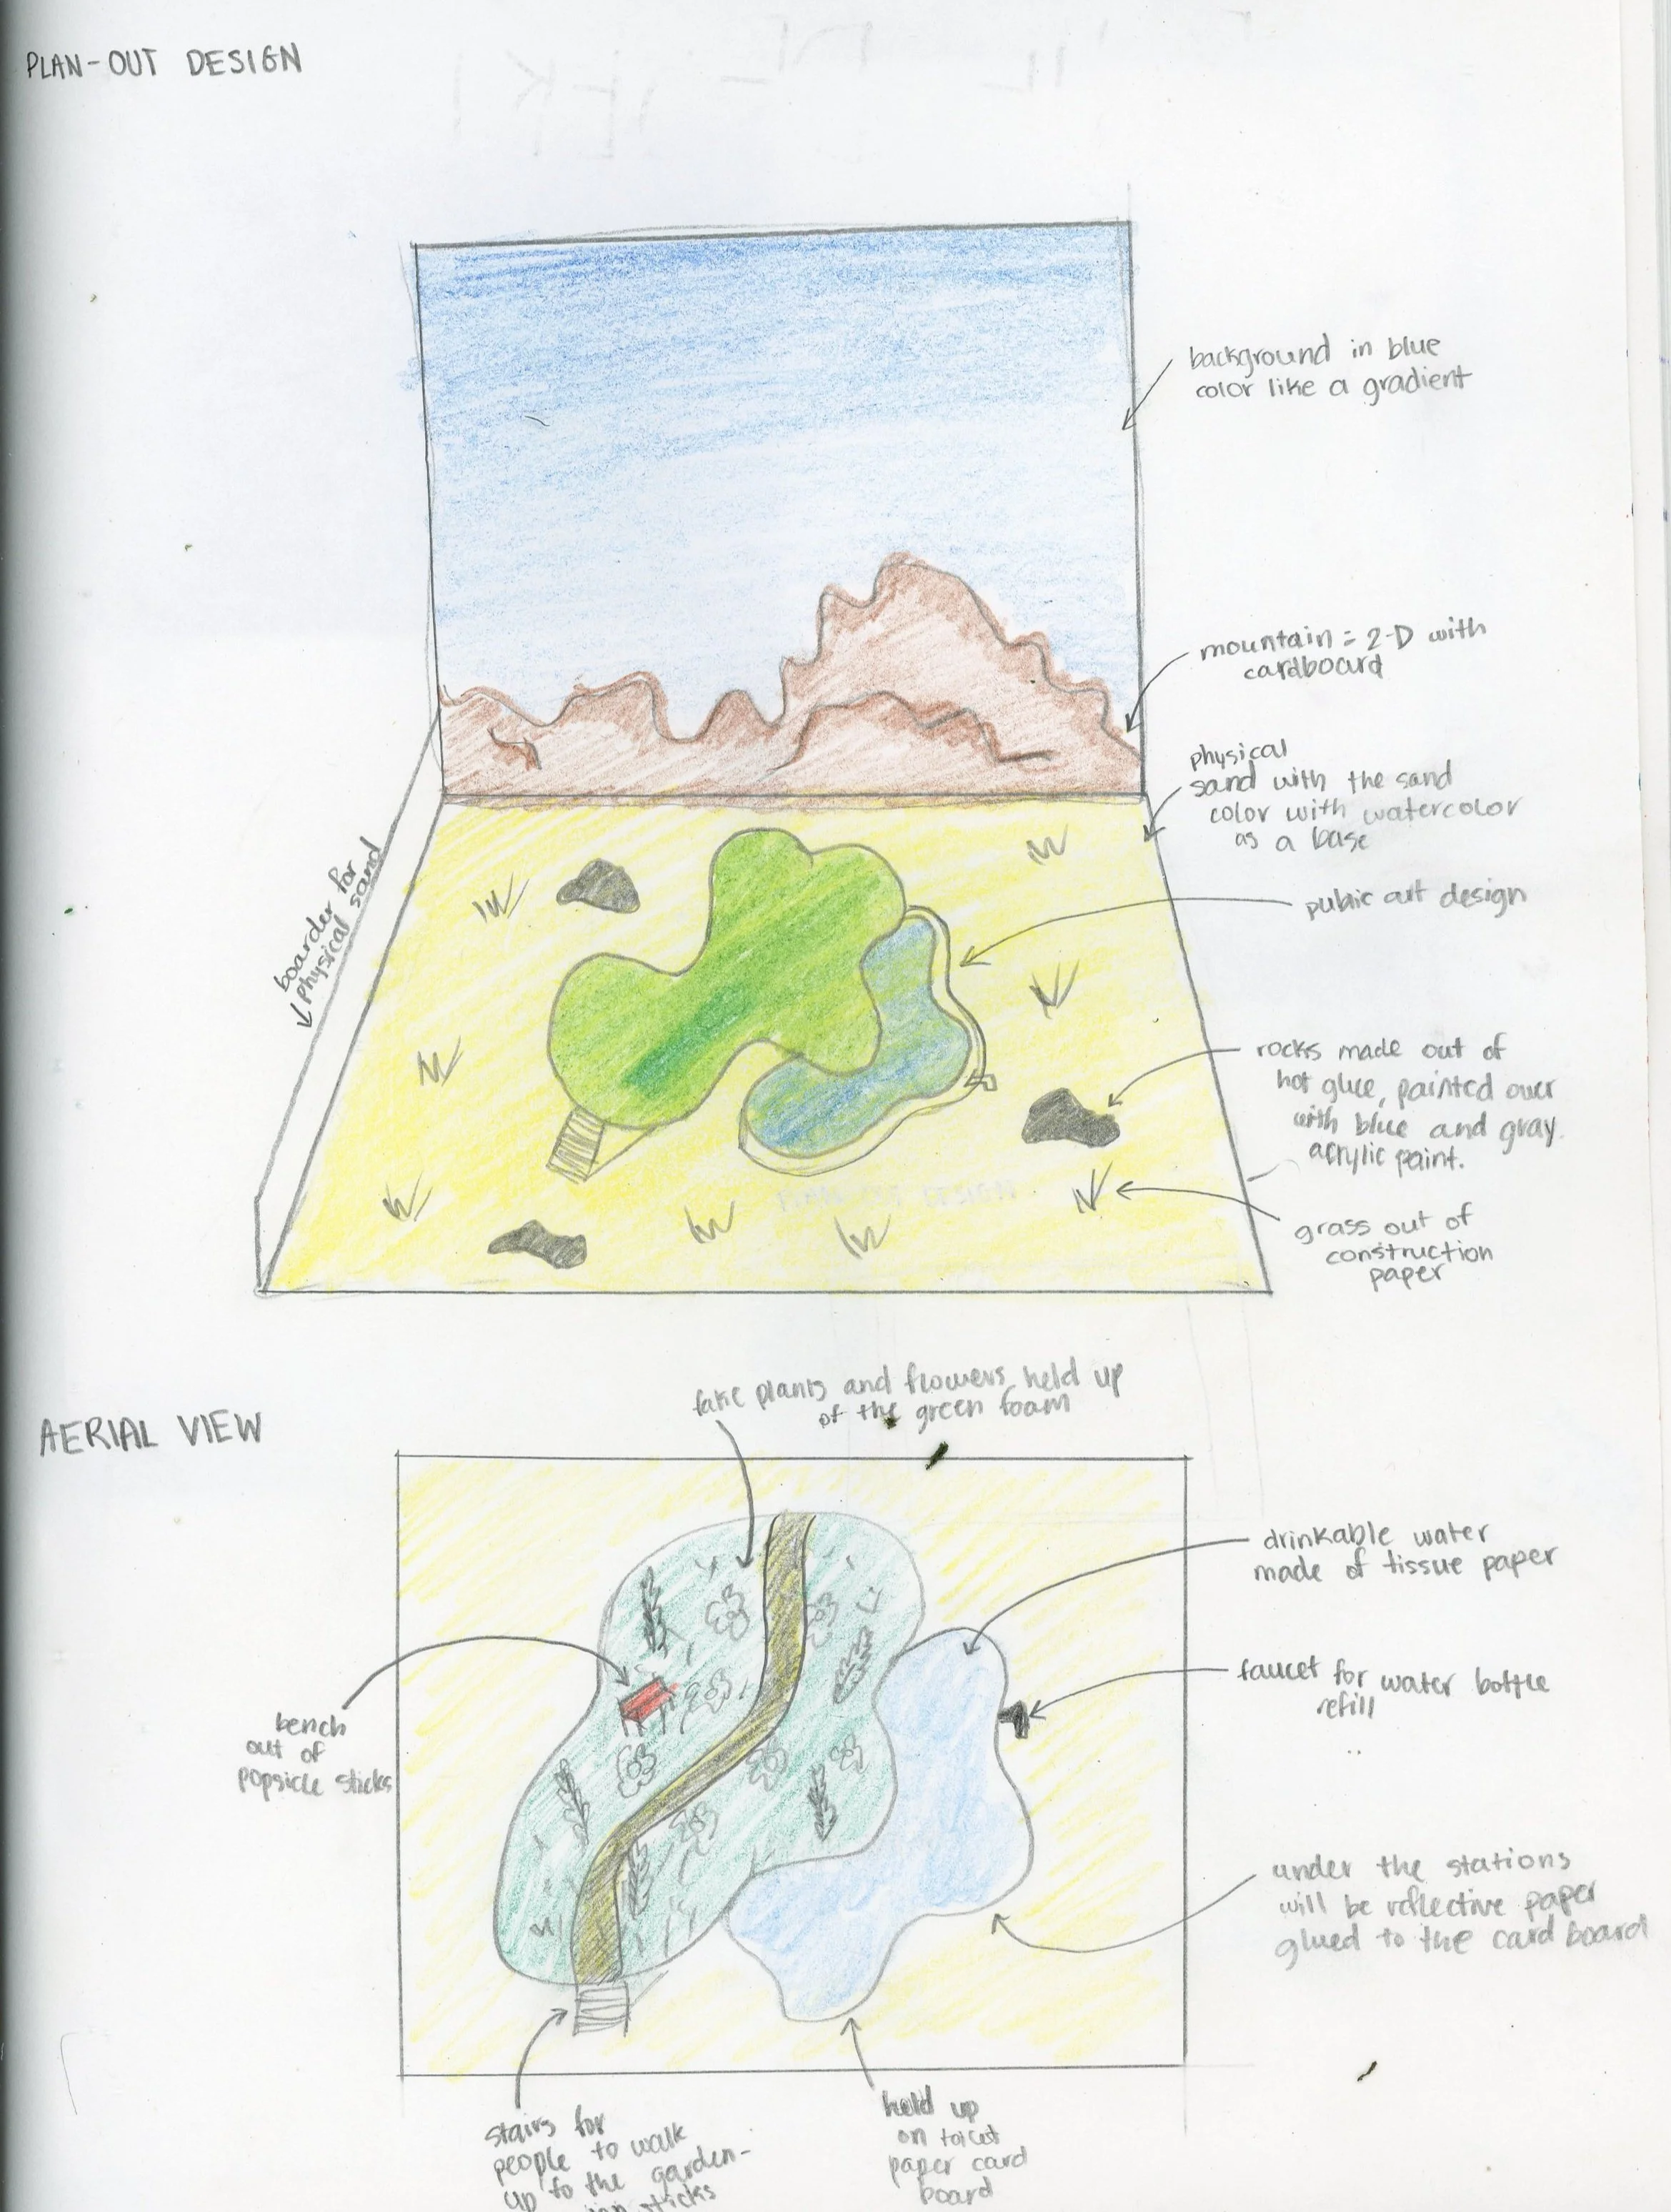 PLAN-OUT DESIGN
background in blue
color like a gradient
mountain = 2-D with
cardboard
physical
sand with the sand
color with watercolor
as a base
boarder for
physical sand
public art design
rocks made out of
hot glue, painted over
with blue and gray
acrylic paint.
PLAN OUT DESIGN
grass out of
construction
paper
AERIAL VIEW
fake plants and flowers held up
of the green foam
drinkable water
made of tissue paper
faucet for water bottle
refill
bench
out of
popsicle sticks
under the stations
will be reflective paper
glued to the card board
stairs for
people to walk
up to the garden-
sticks
held up
on toilet
paper card
board